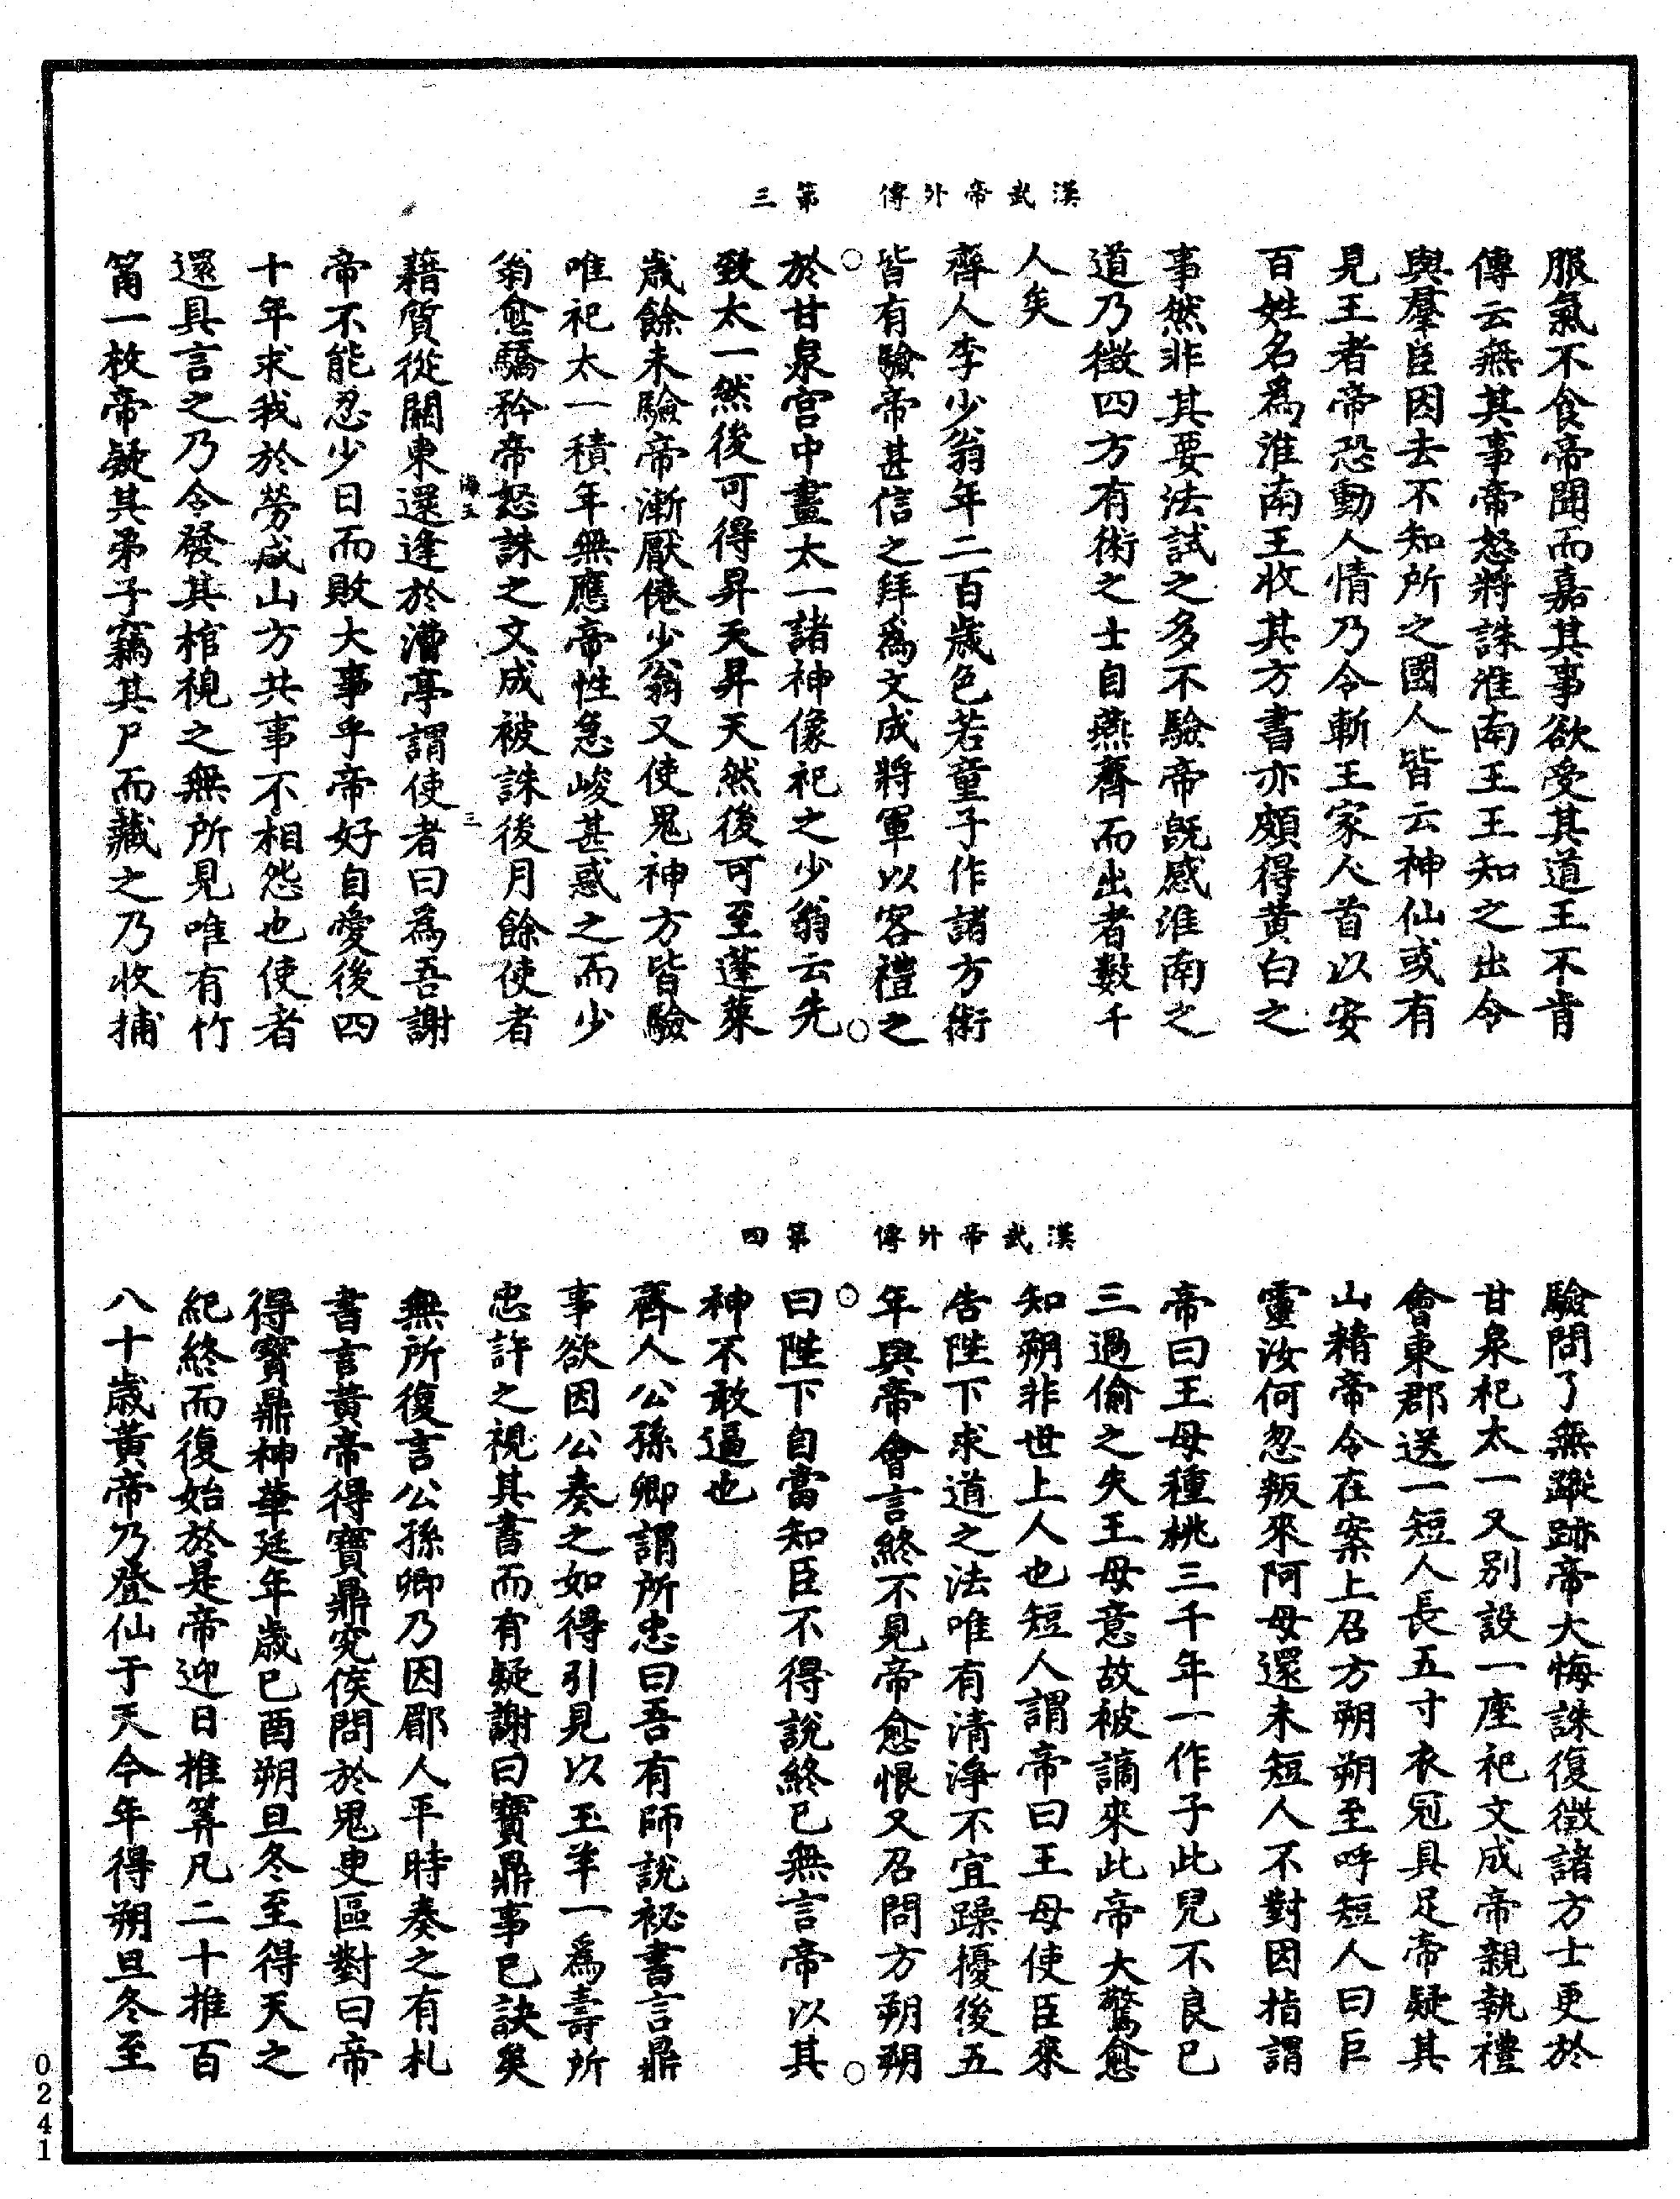 漢武帝外傳　第三
服氣不食帝聞而嘉其事欲受其道王不肯
傳云無其事帝怒將誅淮南王王知之出令
與羣臣因去不知所之國人皆云神仙或有
見王者帝恐動人情乃令斬王家人首以安
百姓名爲淮南王收其方書亦頗得黃白之
事然非其要法試之多不驗帝旣感淮南之
道乃徵四方有術之士自燕齊而出者數千
人矣
齊人李少翁年二百歲色若童子作諸方術
皆有驗帝甚信之拜爲文成將軍以客禮之
於甘泉宮中畫太一諸神像祀之少翁云先
致太一然後可得昇天昇天然後可至蓬萊
歲餘未驗帝漸厭倦少翁又使鬼神方皆驗
唯祀太一積年無應帝性急峻甚惑之而少
翁愈驕矜帝怒誅之文成被誅後月餘使者
海五　三
藉質從關東還逢於漕亭謂使者曰爲吾謝
帝不能忍少日而敗大事乎帝好自愛後四
十年求我於勞成山方共事不相怨也使者
還具言之乃令發其棺視之無所見唯有竹
筩一枚帝疑其弟子竊其尸而藏之乃收捕
漢武帝外傳　第四
驗問了無蹤跡帝大悔誅復徵諸方士更於
甘泉祀太一又別設一座祀文成帝親執禮
會東郡送一短人長五寸衣冠具足帝疑其
山精帝令在案上召方朔朔至呼短人曰巨
靈汝何忽叛來阿母還未短人不對因指謂
帝曰王母種桃三千年一作子此兒不良已
三過偷之失王母意故被謫來此帝大驚愈
知朔非世上人也短人謂帝曰王母使臣來
告陛下求道之法唯有清淨不宜躁擾後五
年與帝會言終不見帝愈恨又召問方朔朔
曰陛下自當知臣不得說終已無言帝以其
神不敢逼也
齊人公孫卿謂所忠曰吾有師說祕書言鼎
事欲因公奏之如得引見以玉羊一爲壽所
忠許之視其書而有疑謝曰寶鼎事已訣矣
無所復言公孫卿乃因郿人平時奏之有札
書言黃帝得寶鼎宛侯問於鬼更區對曰帝
得寶鼎神華延年歲已酉朔旦冬至得天之
紀終而復始於是帝迎日推筭凡二十推百
八十歲黃帝乃登仙于天今年得朔旦冬至
0241